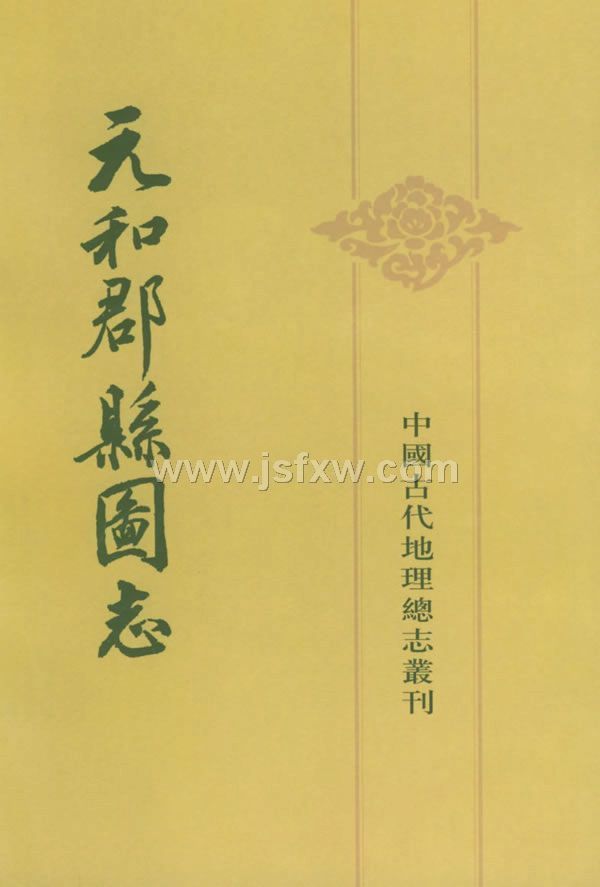 元和郡縣圖志
中國古代地理總志叢刊
www.jsfxw.com